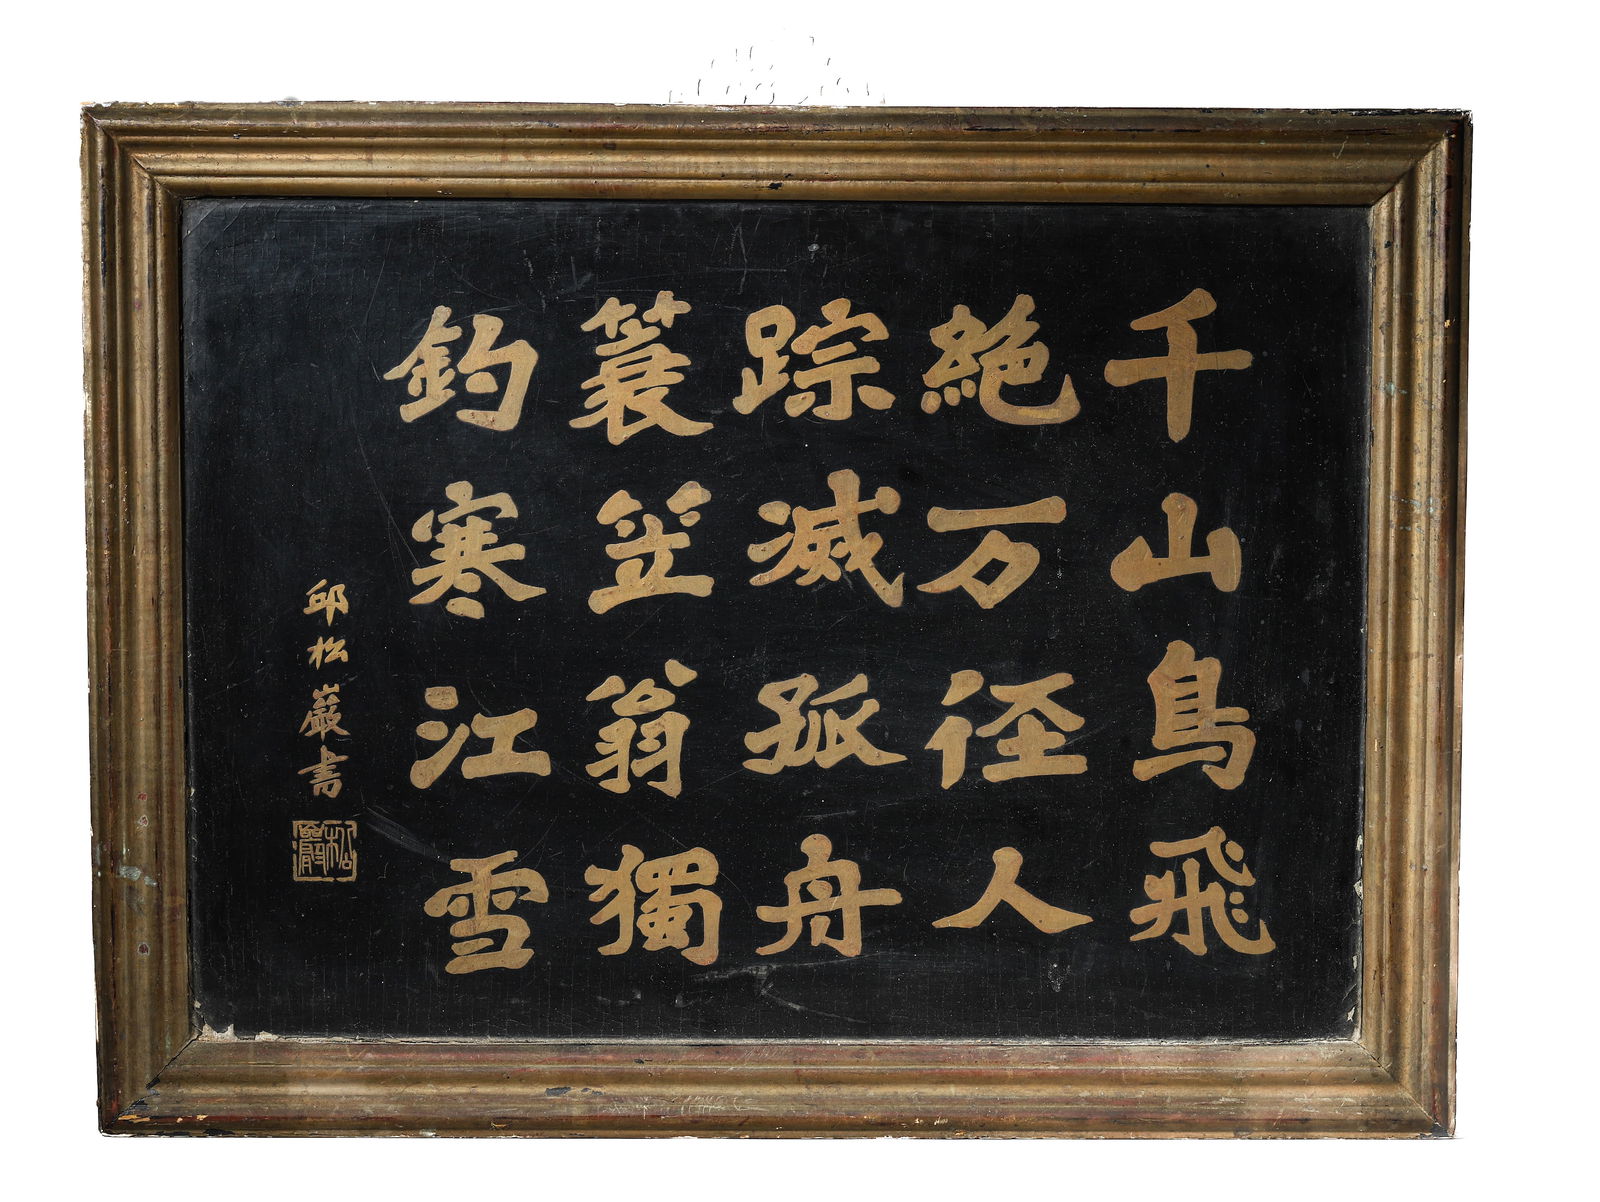 千山鳥飛
絶万径人
踪滅孤舟
簑笠翁獨
釣寒江雪
邱松巖書
松巖